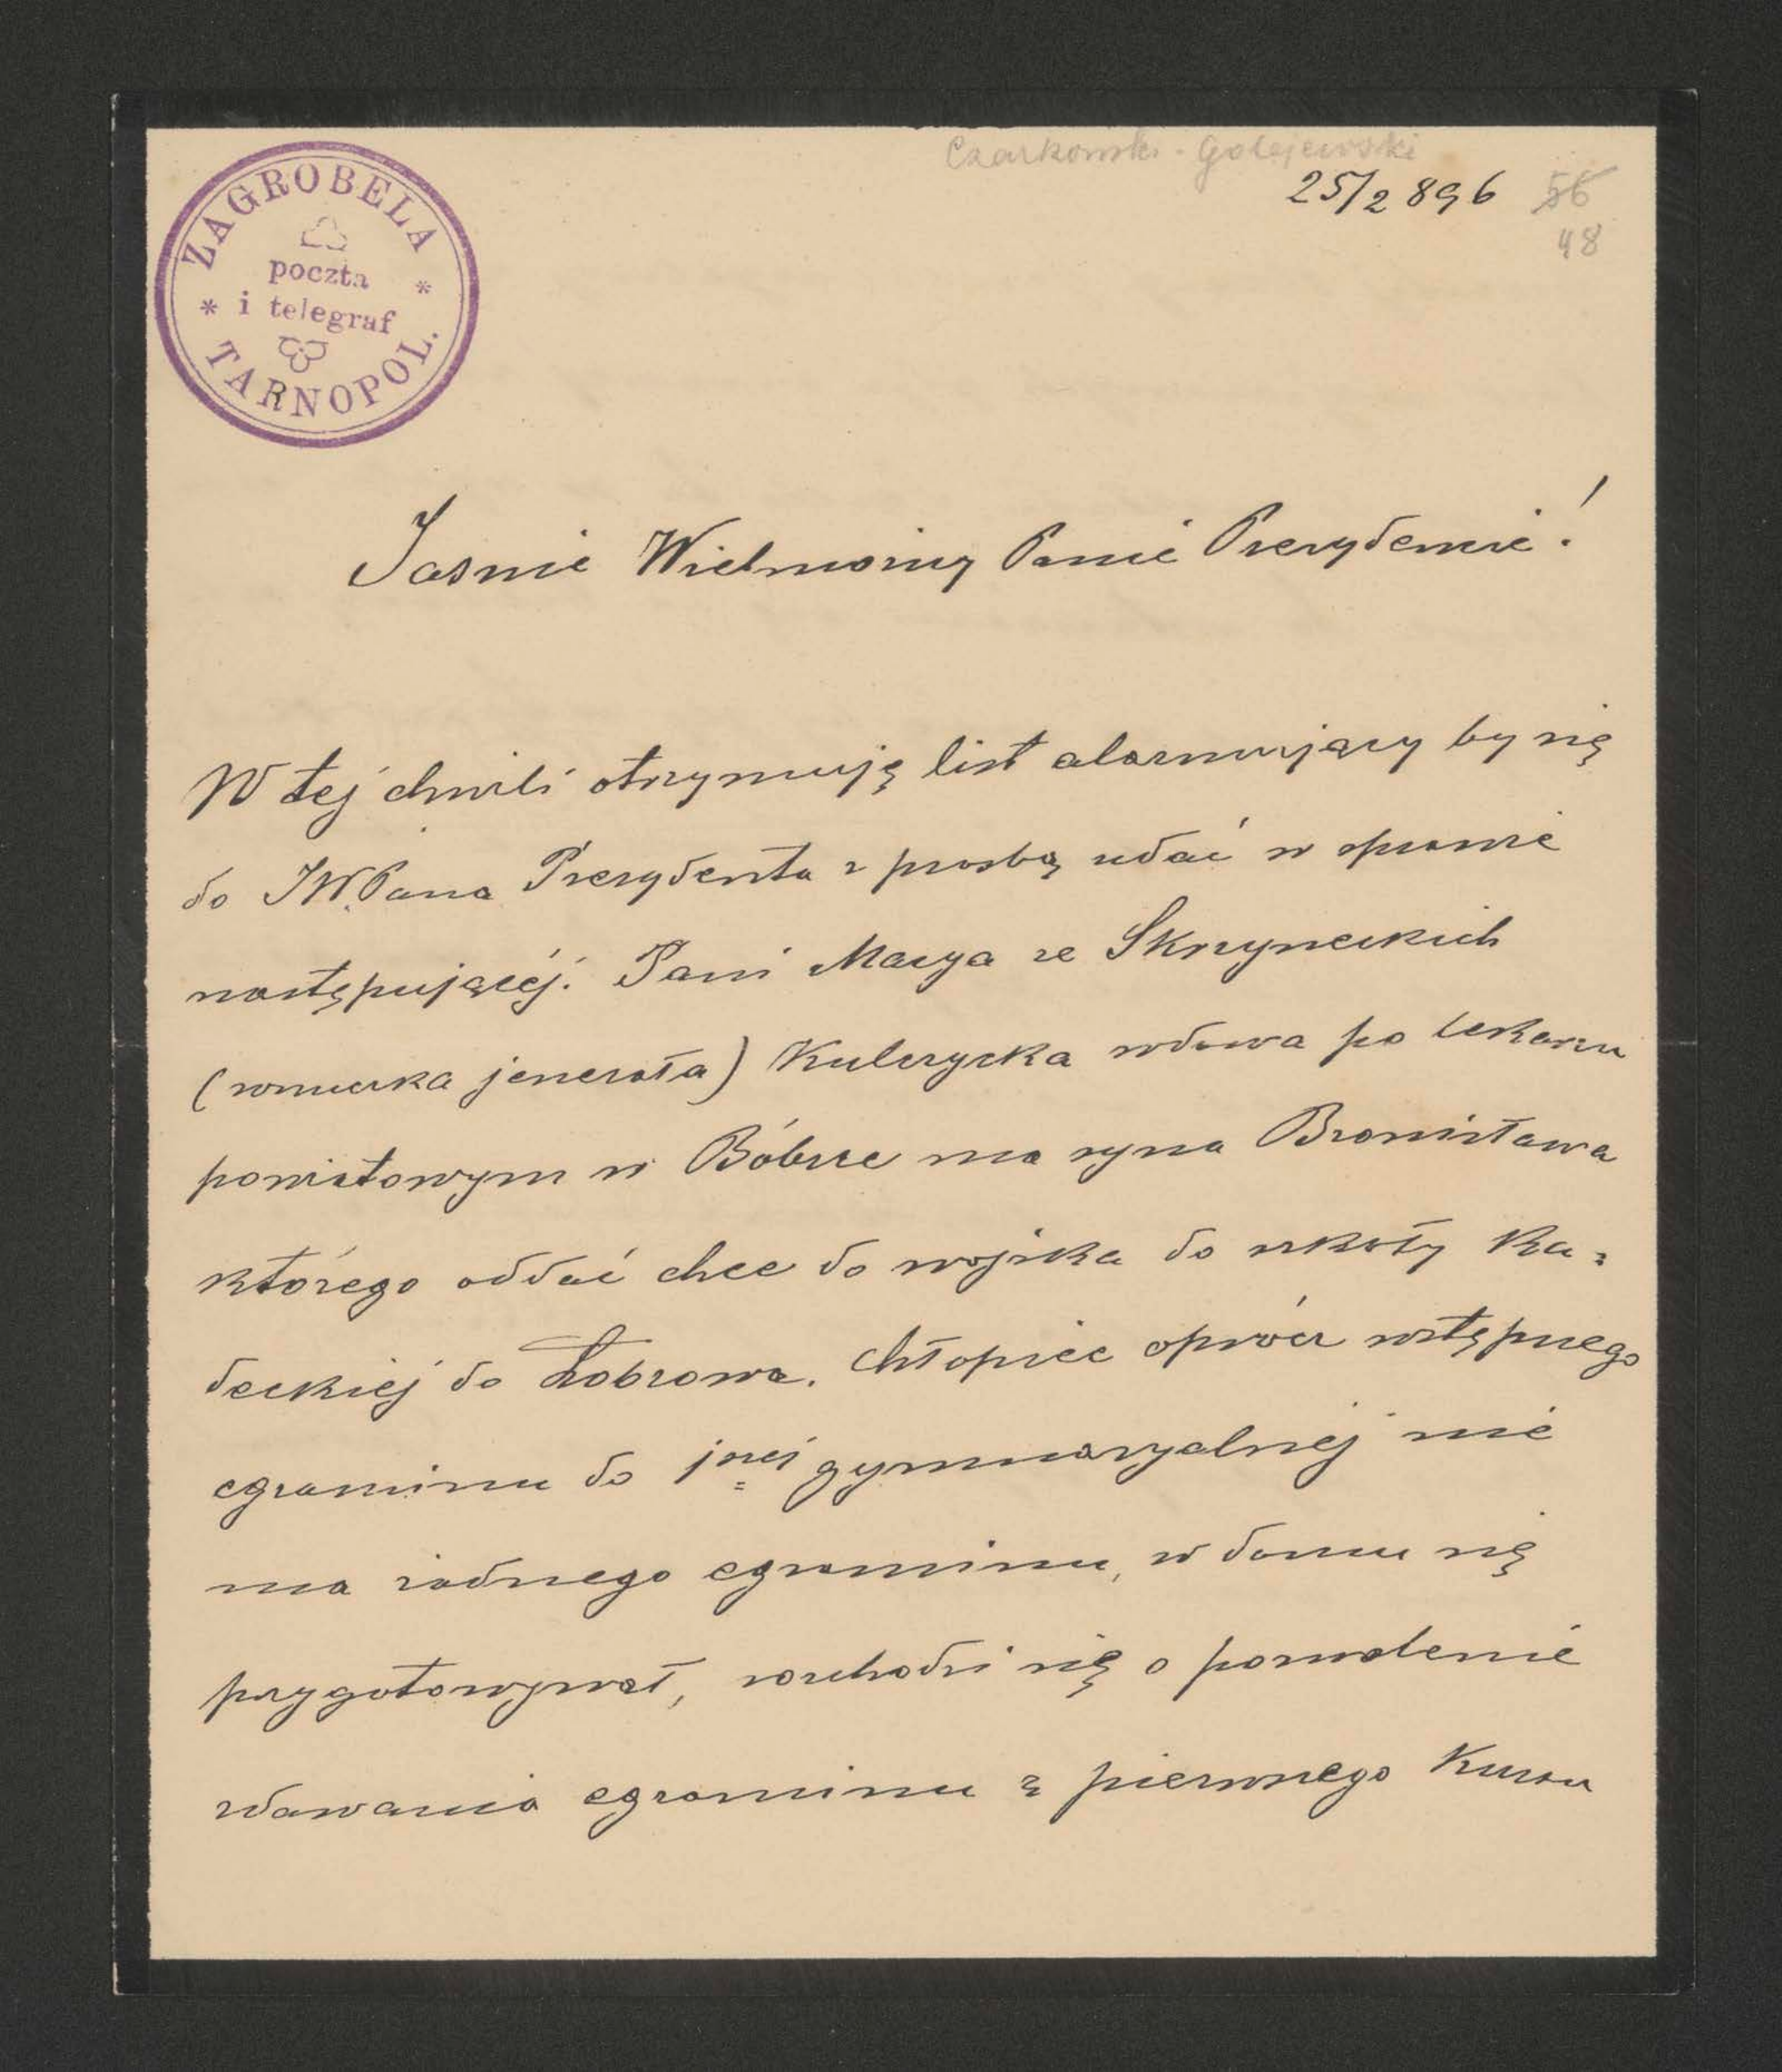 Czarkowski-Golejewski
25/2 896
56
48
ZAGROBELA
poczta
i telegraf
TARNOPOL.
Jasnie Wielmożny Panie Prezydencie!
W tej chwili otrzymuję list alarmujący by się
do JW.Pana Prezydenta z prosbą udać w sprawie
następującéj: Pani Marya ze Skrzyneckich
(wnuczka jenerała) Kulczycka wdowa po lekarzu
powiatowym w Bóbrce ma syna Bronisława
którego oddać chce do wojska do szkoły ka=
deckiéj do Łobzowa. Chłopiec oprócz wstępnego
egzaminu do 1széj gymnazyalnéj nie
ma żadnego egzaminu, w domu się
przygotowywał, rozchodzi się o pozwolenie
zdawania egzaminu z pierwszego kursu